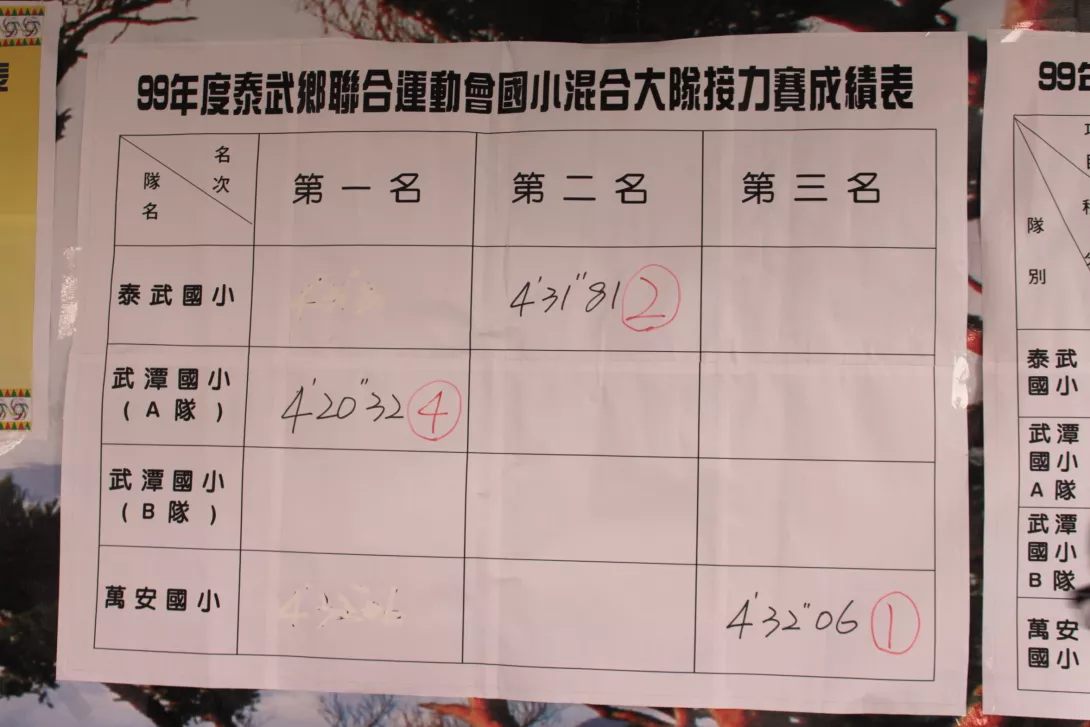 99年度泰武鄉聯合運動會國小混合大隊接力賽成績表
名次
隊名
第一名
第二名
第三名
泰武國小
4'31"81 ②
武潭國小
(A隊)
4'20"32 ④
武潭國小
(B隊)
萬安國小
4'32"06 ①
表
99年
隊別
泰武
國小
武潭
國小
A隊
武潭
國小
B隊
萬安
國小